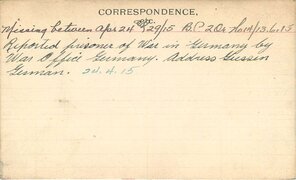 CORRESPONDENCE.
Missing between Apr 24 & 29/15 B.P 2Os
Reported prisoner of War in Germany by
War Office Germany. Address Giessen
German. 24.4.15